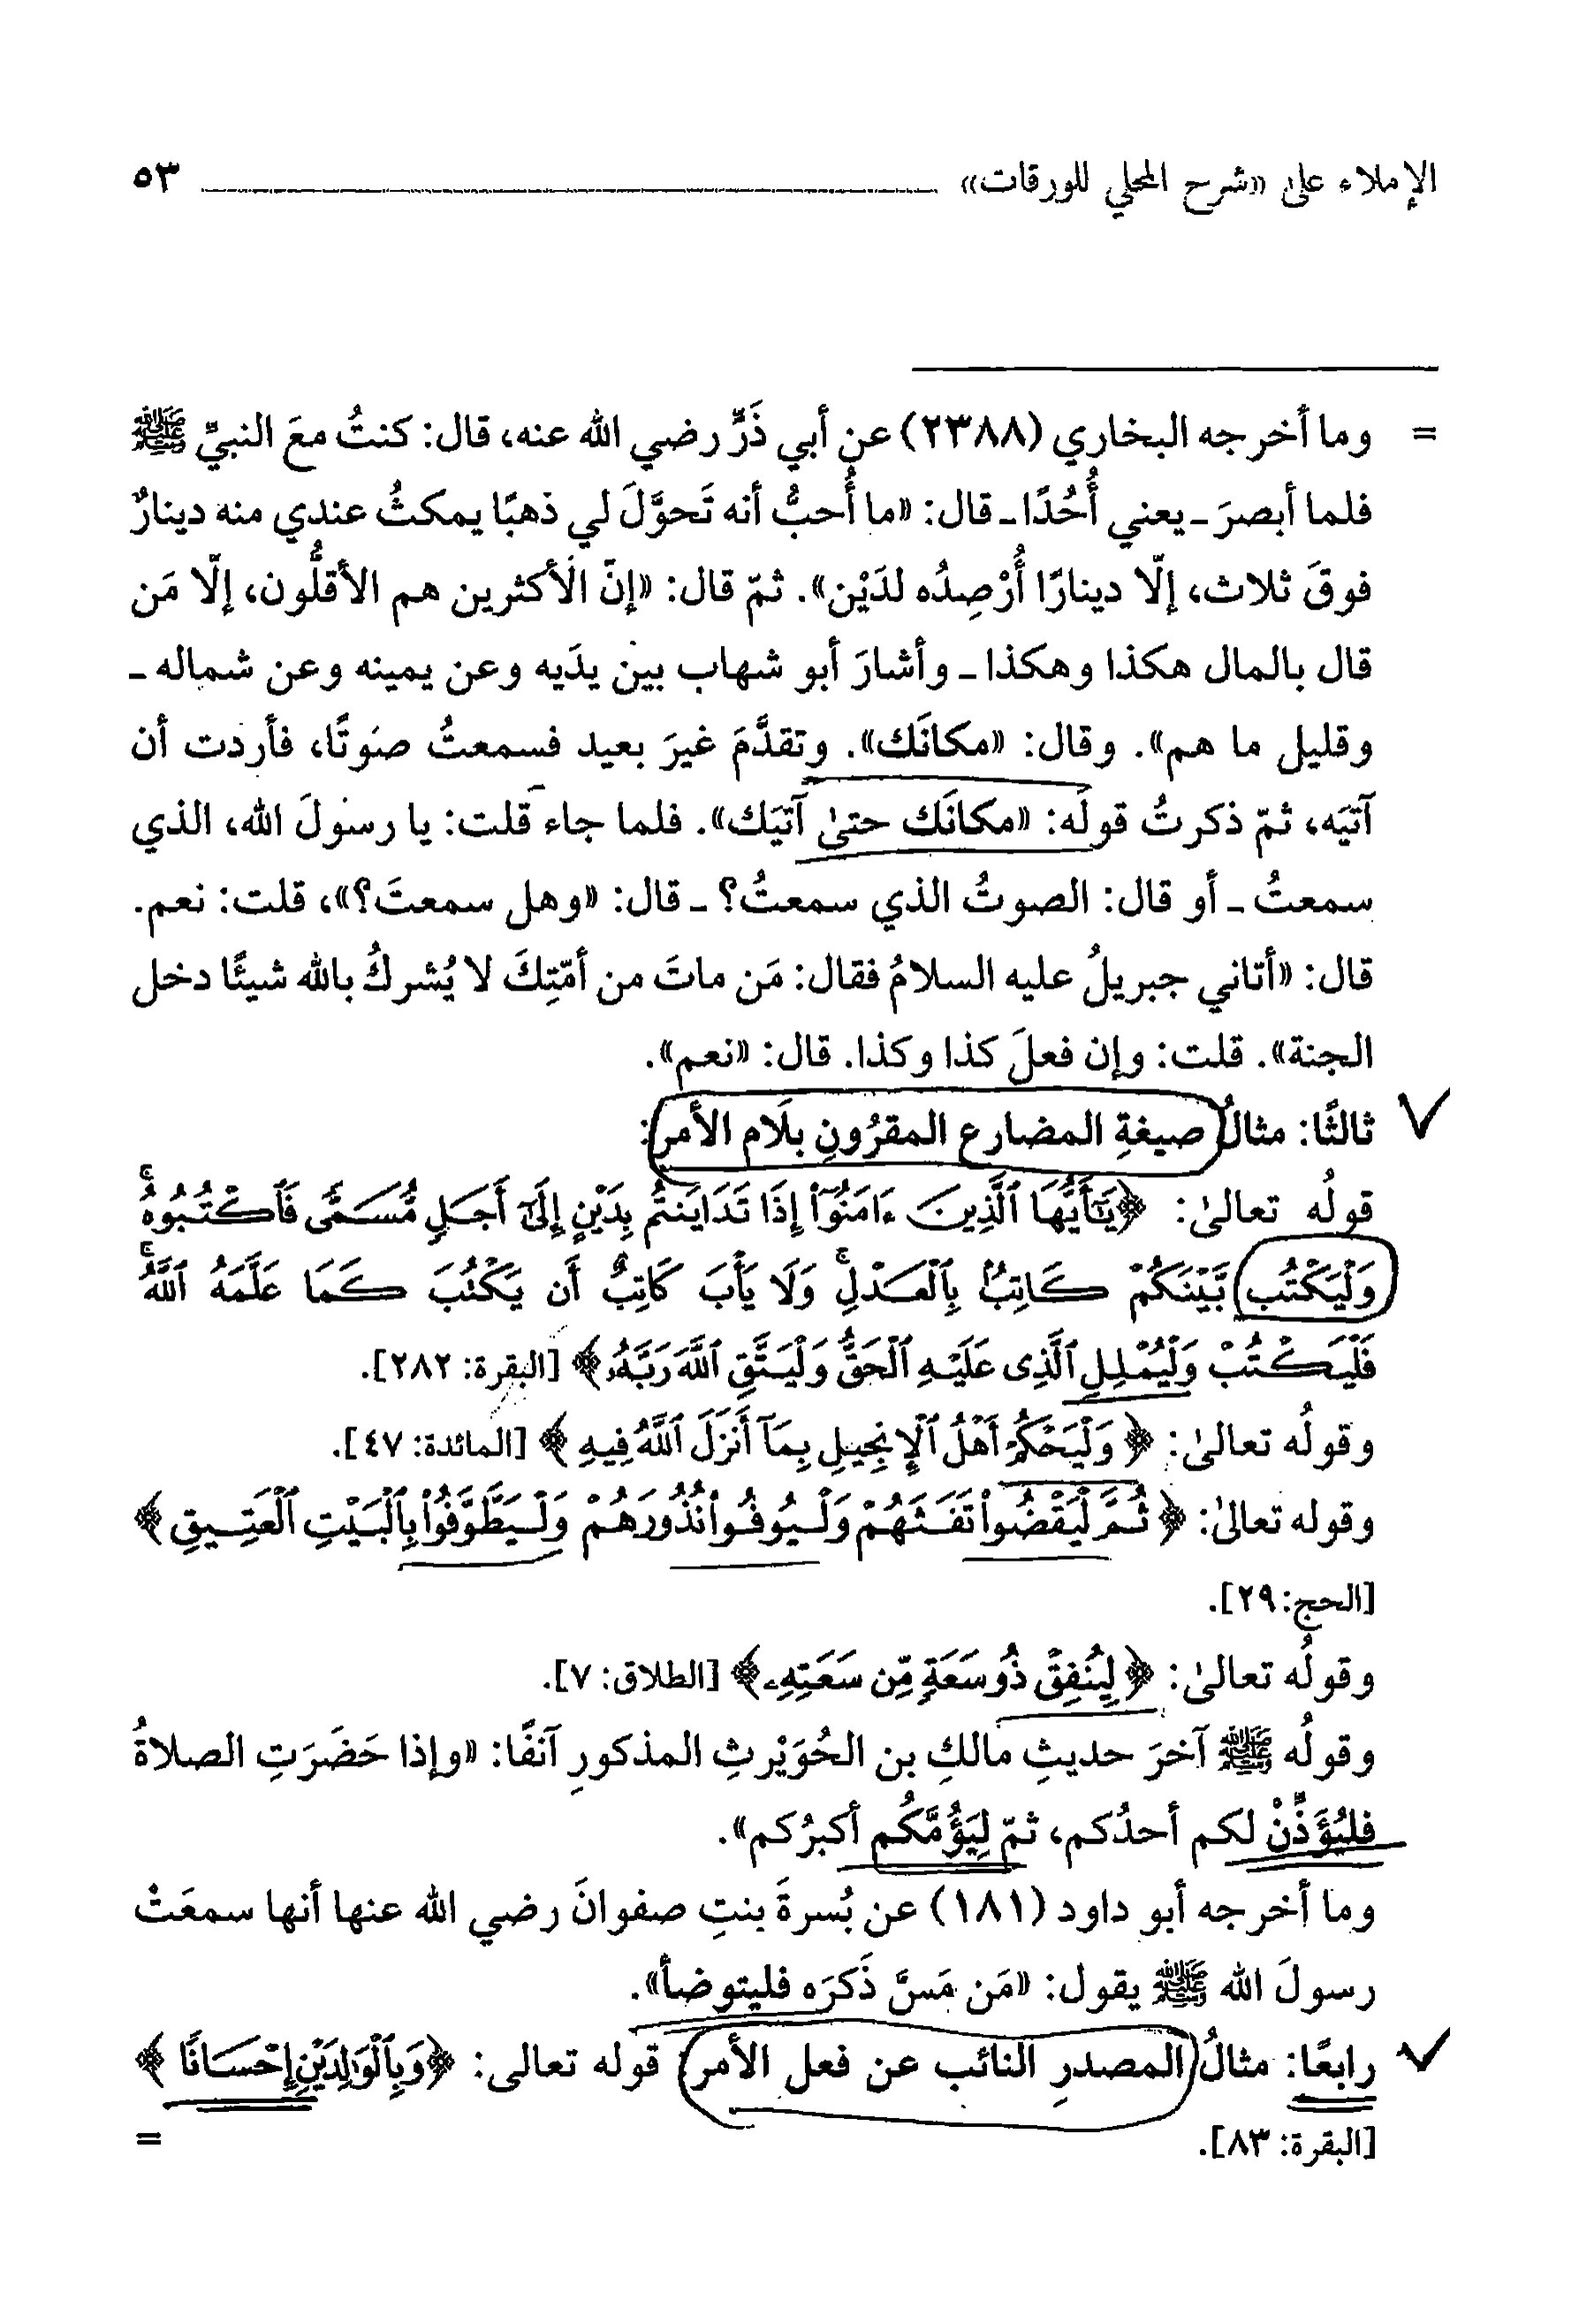 الإملاء على «شرح المحلي للورقات» ٥٣
= وما أخرجه البخاري (٢٣٨٨) عن أبي ذَرٍّ رضي الله عنه، قال: كنتُ معَ النبيِّ ﷺ
فلما أبصرَ ـ يعني أُحُدًا ـ قال: «ما أُحبُّ أنه تَحوَّلَ لي ذهبًا يمكثُ عندي منه دينارٌ
فوقَ ثلاث، إلّا دينارًا أُرْصِدُه لدَيْن». ثمّ قال: «إنّ الأكثرين هم الأقلُّون، إلّا مَن
قال بالمال هكذا وهكذا ـ وأشارَ أبو شهاب بين يدَيه وعن يمينه وعن شماله ـ
وقليل ما هم». وقال: «مكانَك». وتقدَّمَ غيرَ بعيد فسمعتُ صَوتًا، فأردت أن
آتيَه، ثمّ ذكرتُ قولَه: «مكانَك حتىٰ آتيَك». فلما جاء قلت: يا رسولَ الله، الذي
سمعتُ ـ أو قال: الصوتُ الذي سمعتُ؟ ـ قال: «وهل سمعتَ؟»، قلت: نعم.
قال: «أتاني جبريلُ عليه السلامُ فقال: مَن ماتَ من أمّتِكَ لا يُشركُ بالله شيئًا دخل
الجنة». قلت: وإن فعلَ كذا وكذا. قال: «نعم».
ثالثًا: مثالُ صيغةِ المضارع المقرُونِ بلَام الأمر:
قولُه تعالىٰ: ﴿يَٰٓأَيُّهَا ٱلَّذِينَ ءَامَنُوٓا۟ إِذَا تَدَايَنتُم بِدَيْنٍ إِلَىٰٓ أَجَلٍ مُّسَمًّى فَٱكْتُبُوهُ ۚ
وَلْيَكْتُب بَّيْنَكُمْ كَاتِبٌۢ بِٱلْعَدْلِ ۚ وَلَا يَأْبَ كَاتِبٌ أَن يَكْتُبَ كَمَا عَلَّمَهُ ٱللَّهُ ۚ
فَلْيَكْتُبْ وَلْيُمْلِلِ ٱلَّذِى عَلَيْهِ ٱلْحَقُّ وَلْيَتَّقِ ٱللَّهَ رَبَّهُۥ﴾ [البقرة: ٢٨٢].
وقولُه تعالىٰ: ﴿وَلْيَحْكُمْ أَهْلُ ٱلْإِنجِيلِ بِمَآ أَنزَلَ ٱللَّهُ فِيهِ﴾ [المائدة: ٤٧].
وقوله تعالىٰ: ﴿ثُمَّ لْيَقْضُوا۟ تَفَثَهُمْ وَلْيُوفُوا۟ نُذُورَهُمْ وَلْيَطَّوَّفُوا۟ بِٱلْبَيْتِ ٱلْعَتِيقِ﴾
[الحج: ٢٩].
وقولُه تعالىٰ: ﴿لِيُنفِقْ ذُو سَعَةٍ مِّن سَعَتِهِۦ﴾ [الطلاق: ٧].
وقولُه ﷺ آخرَ حديثِ مالكِ بن الحُوَيْرثِ المذكورِ آنفًا: «وإذا حَضَرَتِ الصلاةُ
فليُؤَذِّنْ لكم أحدُكم، ثمّ لِيَؤُمَّكُم أكبرُكم».
وما أخرجه أبو داود (١٨١) عن بُسرةَ بنتِ صفوانَ رضي الله عنها أنها سمعَتْ
رسولَ الله ﷺ يقول: «مَن مَسَّ ذَكرَه فليتوضأ».
رابعًا: مثالُ المصدرِ النائب عن فعل الأمر: قوله تعالى: ﴿وَبِٱلْوَٰلِدَيْنِ إِحْسَانًا﴾
[البقرة: ٨٣]. =